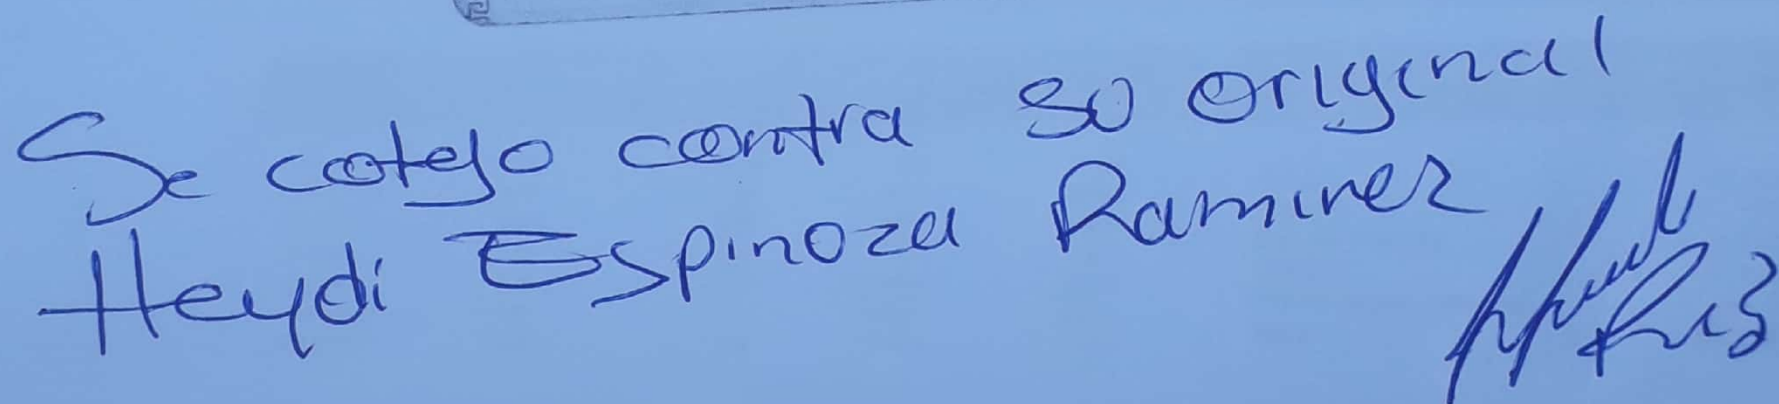 Se cotejo contra so original
Heydi Espinoza Ramirez